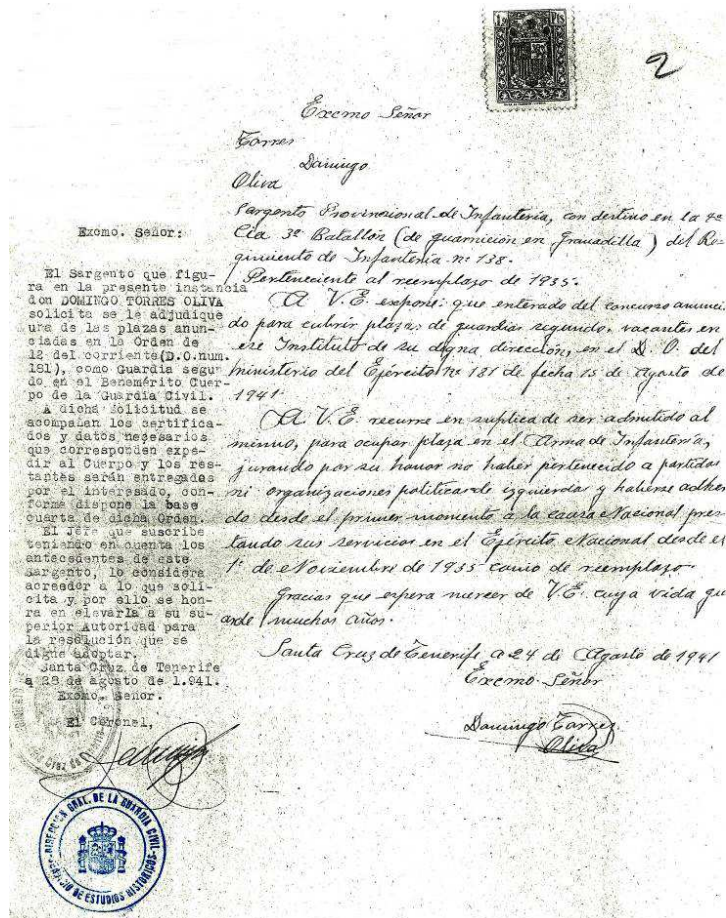 1 Pts
2
Excmo Señor
Torres
Domingo
Oliva
Sargento Provincional de Infanteria, con destino en la 4ª
Cia 3er Batallón (de guarnición en Granadilla) del Re-
gimiento de Infanteria nº 138.
Perteneciente al reemplazo de 1935.
A V.E. expone: que enterado del concurso anuncia
do para cubrir plazas de guardias segundos vacantes en
ese Instituto de su digna dirección, en el D. O. del
ministerio del Ejército nº 181 de fecha 15 de Agosto de
1941.
A V.E. recurre en suplica de ser admitido al
mismo, para ocupar plaza en el Arma de Infanteria,
jurando por su honor no haber pertenecido a partidos
ni organizaciones politicas de izquierdas y haberse adheri
do desde el primer momento a la causa Nacional pres-
tando sus servicios en el Ejército Nacional desde el
1º de Noviembre de 1935 como de reemplazo.
Gracias que espera merecer de V.E. cuya vida gu
arde muchos años.
Santa Cruz de Tenerife, a 24 de Agosto de 1941
Excmo Señor
Domingo Torres
Oliva
Excmo. Señor:
El Sargento que figu-
ra en la presente instancia
don DOMINGO TORRES OLIVA
solicita se le adjudique
una de las plazas anun-
ciadas en la Orden de
12 del corriente(D.O.num.
181), como Guardia segun
do en el Benemérito Cuer-
po de la Guardia Civil.
A dicha solicitud se
acompañan los certifica-
dos y datos necesarios
que corresponden expe-
dir al Cuerpo y los res-
tantes serán entregados
por el interesado, con-
forme dispone la base
cuarta de dicha Orden.
El Jefe que suscribe
teniendo en cuenta los
antecedentes de este
Sargento, lo considera
acreedor a lo que soli-
cita y por ello se hon-
ra en elevarla a su su-
perior Autoridad para
la resolución que se
digne adoptar.
Santa Cruz de Tenerife
a 28 de agosto de 1.941.
Excmo. Señor.
El Coronel,
DIRECCION GRAL. DE LA GUARDIA CIVIL
SERVICIO DE ESTUDIOS HISTORICOS